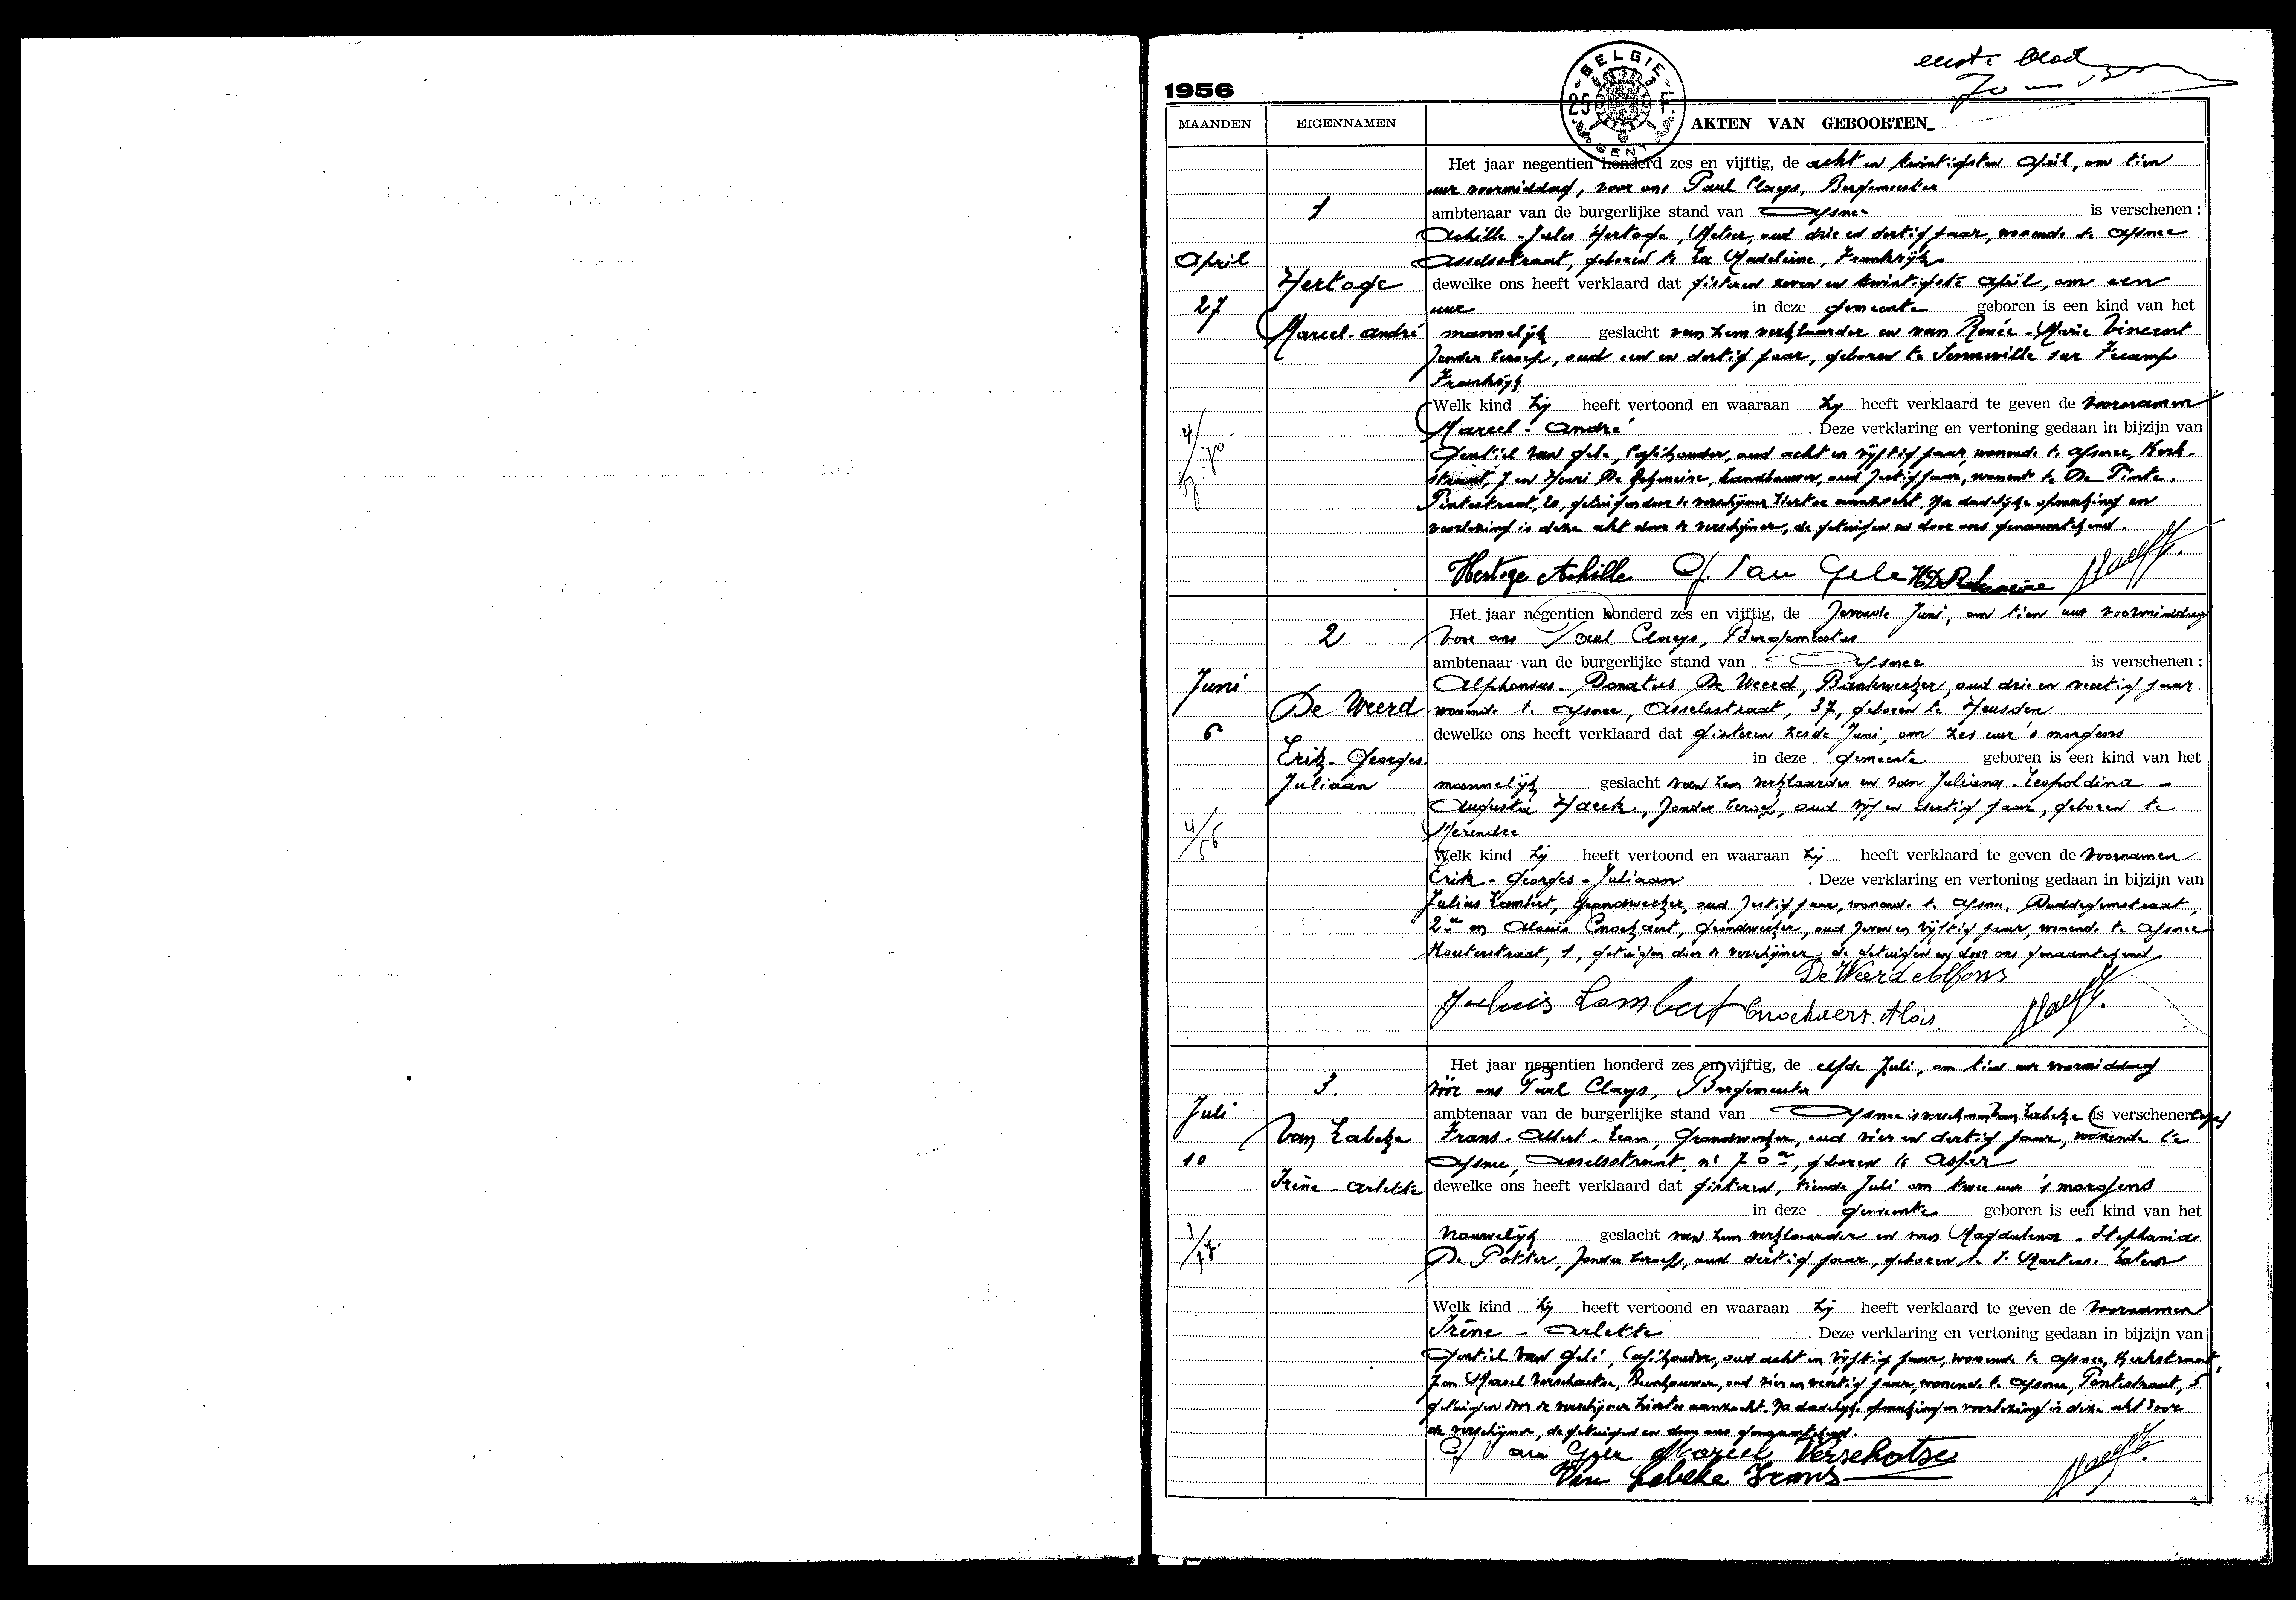 eerste blad
1956
BELGIE
25 F.
GENT
MAANDEN EIGENNAMEN AKTEN VAN GEBOORTEN
Het jaar negentien honderd zes en vijftig, de acht en twintigsten April, om tien
uur voormiddag, voor ons Paul Claeys, Burgemeester
1
ambtenaar van de burgerlijke stand van Afsnee is verschenen :
Achille - Jules Hertoge, Metser, oud drie en dertig jaar, wonende te Afsnee
April
Asselsstraat, geboren te La Madeleine, Frankrijk
Hertoge
dewelke ons heeft verklaard dat gisteren zeven en twintigste April, om een
27
uur in deze gemeente geboren is een kind van het
Marcel-André
mannelijk geslacht van hem verklaarder en van Renée - Marie Vincent
zonder beroep, oud een en dertig jaar, geboren te Senneville sur Fecamp
Frankrijk
Welk kind hij heeft vertoond en waaraan hij heeft verklaard te geven de voornamen
Marcel - André . Deze verklaring en vertoning gedaan in bijzijn van
4/70
Gentiel Van Gele, Caféhouder, oud acht en vijftig jaar, wonende te Afsnee, Kerk-
straat, 7 en Henri De landbouwer, oud zestig jaar, wonende te De Pinte.
Pintestraat, 20, getuigen door de verschijner hiertoe aanzocht. Na dadelijke opmaking en
voorlezing is deze akt door de verschijner, de getuigen en door ons genaamtekend.
Hertoge Achille G. Van Gele
Het jaar negentien honderd zes en vijftig, de zevende Juni, om tien uur voormiddag
2
voor ons Paul Claeys, Burgemeester
ambtenaar van de burgerlijke stand van Afsnee is verschenen :
Juni
Alphonsus - Donatus De Weerd, Bankwerker, oud drie en veertig jaar
De Weerd
wonende te Afsnee, Asselsstraat, 37, geboren te Heusden
6
dewelke ons heeft verklaard dat gisteren zesde Juni, om zes uur 's morgens
Erik - Georges
in deze gemeente geboren is een kind van het
Juliaan
mannelijk geslacht van hem verklaarder en van Juliana - Leopoldina -
Augusta Haeck, zonder beroep, oud vijf en dertig jaar, geboren te
4/56
Merendre
Welk kind hij heeft vertoond en waaraan hij heeft verklaard te geven de voornamen
Erik - Georges - Juliaan . Deze verklaring en vertoning gedaan in bijzijn van
Julius Lambert, grondwerker, oud zestig jaar, wonende te Afsnee, Duddegemstraat,
2a en Aloïs Cnockaert, grondwerker, oud zeven en vijftig jaar, wonende te Afsnee
Kouterstraat, 1, getuigen door de verschijner de getuigen en door ons genaamtekend.
De Weerd Alfons
Juluis Lambert Cnockaert. Aloïs.
Het jaar negentien honderd zes en vijftig, de elfde Juli, om tien uur voormiddag
3.
voor ons Paul Claeys, Burgemeester
Juli
ambtenaar van de burgerlijke stand van Afsnee is verschenen Van Labeke is verschenen
Van Labeke
Frans - Albert - Leon, Grondwerker, oud vier en dertig jaar, wonende te
10
Afsnee, Asselsstraat, nr 70a, geboren te Asper
Irène - Arlette
dewelke ons heeft verklaard dat gisteren, tiende Juli om twee uur 's morgens
in deze gemeente geboren is een kind van het
vrouwelijk geslacht van hem verklaarder en van Magdalena - Stephania
De Potter, zonder beroep, oud dertig jaar, geboren te St Martens - Latem
Welk kind hij heeft vertoond en waaraan hij heeft verklaard te geven de voornamen
Irène - Arlette . Deze verklaring en vertoning gedaan in bijzijn van
Gentiel Van Gele, Caféhouder, oud acht en vijftig jaar, wonende te Afsnee, Kerkstraat,
7 en Marcel Verschoetse, Beenhouwer, oud vier en veertig jaar, wonende te Afsnee, Pontstraat, 5
getuigen door de verschijner hiertoe aanzocht. Na dadelijke opmaking en voorlezing is deze akt door
de verschijner, de getuigen en door ons genaamtekend.
G Van Gele Marcel Verschoetse
Van Labeke Frans